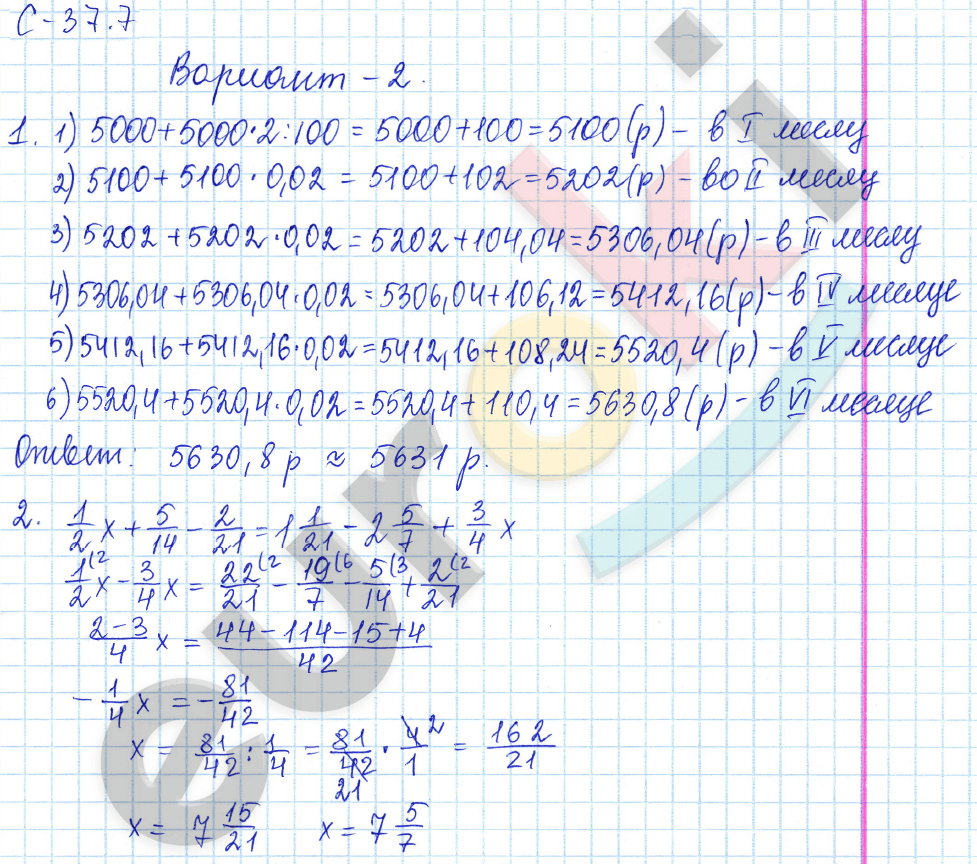 С-37.7
Вариант - 2.
1. 1) 5000+5000·2:100 = 5000+100=5100(р) - в I месяце
2) 5100+5100·0,02 = 5100+102=5202(р) - во II месяце
3) 5202+5202·0,02=5202+104,04=5306,04(р) - в III месяце
4) 5306,04+5306,04·0,02=5306,04+106,12=5412,16(р) - в IV месяце
5) 5412,16+5412,16·0,02=5412,16+108,24=5520,4(р) - в V месяце
6) 5520,4+5520,4·0,02=5520,4+110,4=5630,8(р) - в VI месяце
Ответ: 5630,8 р ≈ 5631 р.
2. 1/2 x + 5/14 - 2/21 = 1 1/21 - 2 5/7 + 3/4 x
1(2/2 x - 3/4 x = 22(2/21 - 19(6/7 - 5(3/14 + 2(2/21
2-3/4 x = 44-114-15+4/42
- 1/4 x = - 81/42
x = 81/42 : 1/4 = 81/42 21 · 4 2/1 = 162/21
x = 7 15/21 x = 7 5/7
euroki